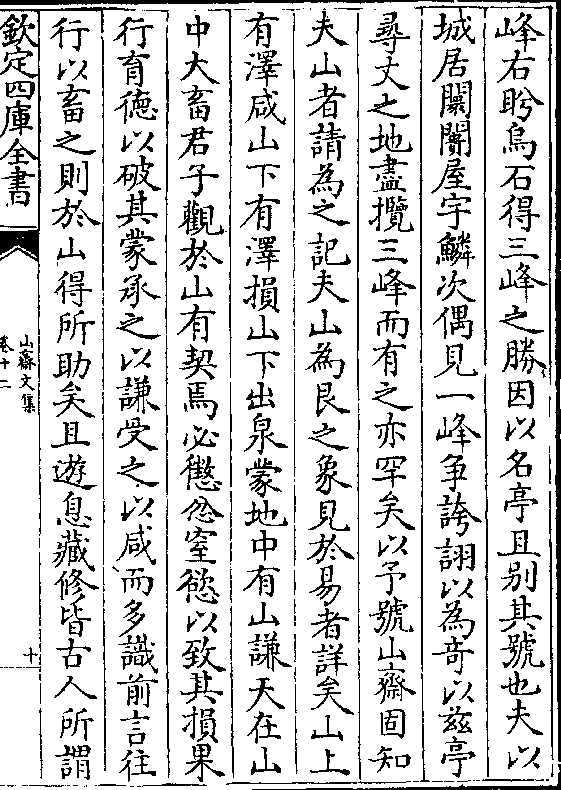 峰右盻烏石得三峰之勝因以名亭且别其號也夫以
城居闤闠屋宇鱗次偶見一峰争誇詡以為竒以兹亭
尋丈之地盡攬三峰而有之亦罕矣以予號山齋固知
夫山者請為之記夫山為艮之象見於易者詳矣山上
有澤咸山下有澤損山下出泉蒙地中有山謙天在山
中大畜君子觀於山有契焉必懲忿窒慾以致其損果
行育德以破其蒙承之以謙受之以咸而多識前言往
行以畜之則於山得所助矣且遊息藏修皆古人所謂
欽定四庫全書
山齋文集
卷十二
十